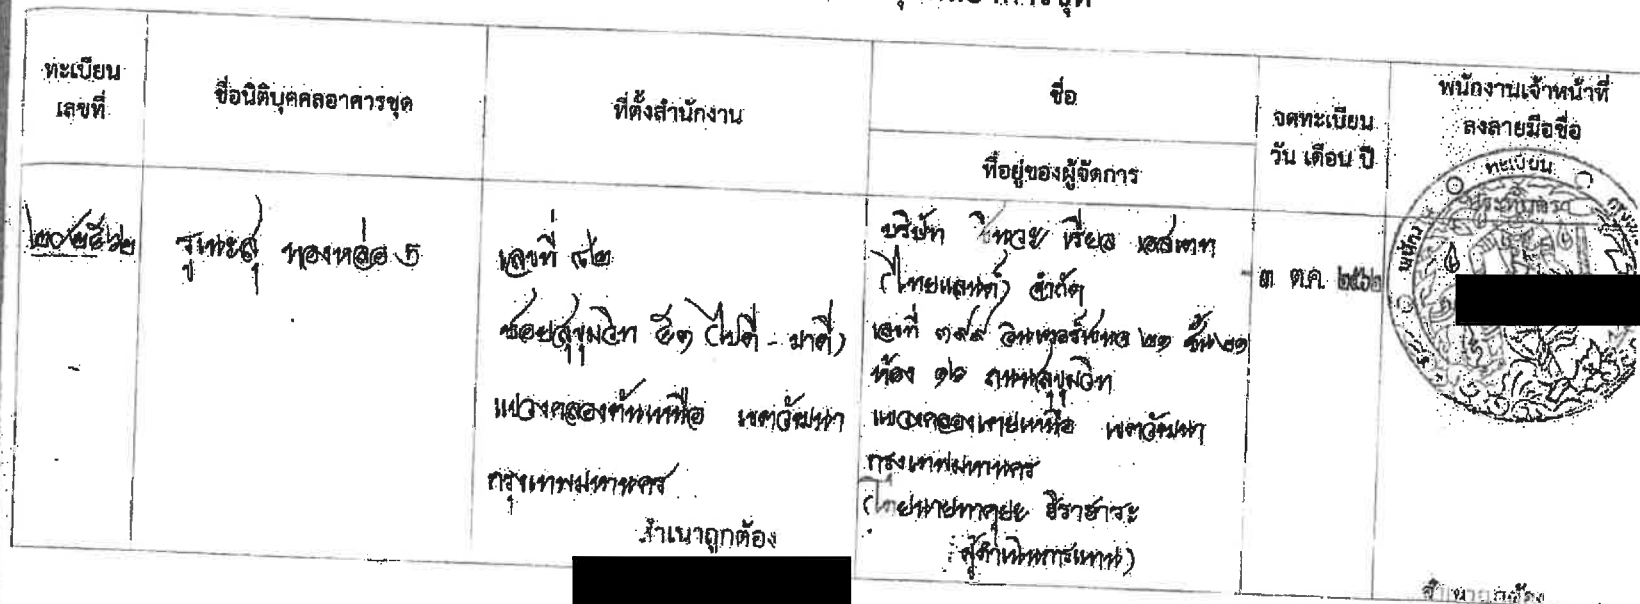 ทะเบียน
เลขที่
ชื่อนิติบุคคลอาคารชุด
ที่ตั้งสำนักงาน
ชื่อ
ที่อยู่ของผู้จัดการ
จดทะเบียน
วัน เดือน ปี
พนักงานเจ้าหน้าที่
ลงลายมือชื่อ
ทะเบียน
๒๐/๒๕๖๒
รูเนะสุ ทองหล่อ 5
เลขที่ ๘๒
ซอยสุขุมวิท ๕๑ (ไปดี - มาดี)
แขวงคลองตันเหนือ เขตวัฒนา
กรุงเทพมหานคร
บริษัท เรียล เอสเตท
(ไทยแลนด์) จำกัด
เลขที่ ๓๙๙ อินเตอร์เชนจ ๒๑ ชั้น ๒๑
ห้อง ๑๒ ถนนสุขุมวิท
แขวงคลองเตยเหนือ เขตวัฒนา
กรุงเทพมหานคร
(โดยนาย ฮิราฮาระ
ผู้ดำเนินการแทน)
๓ ต.ค. ๒๕๖๒
สำเนาถูกต้อง
สำเนาถูกต้อง